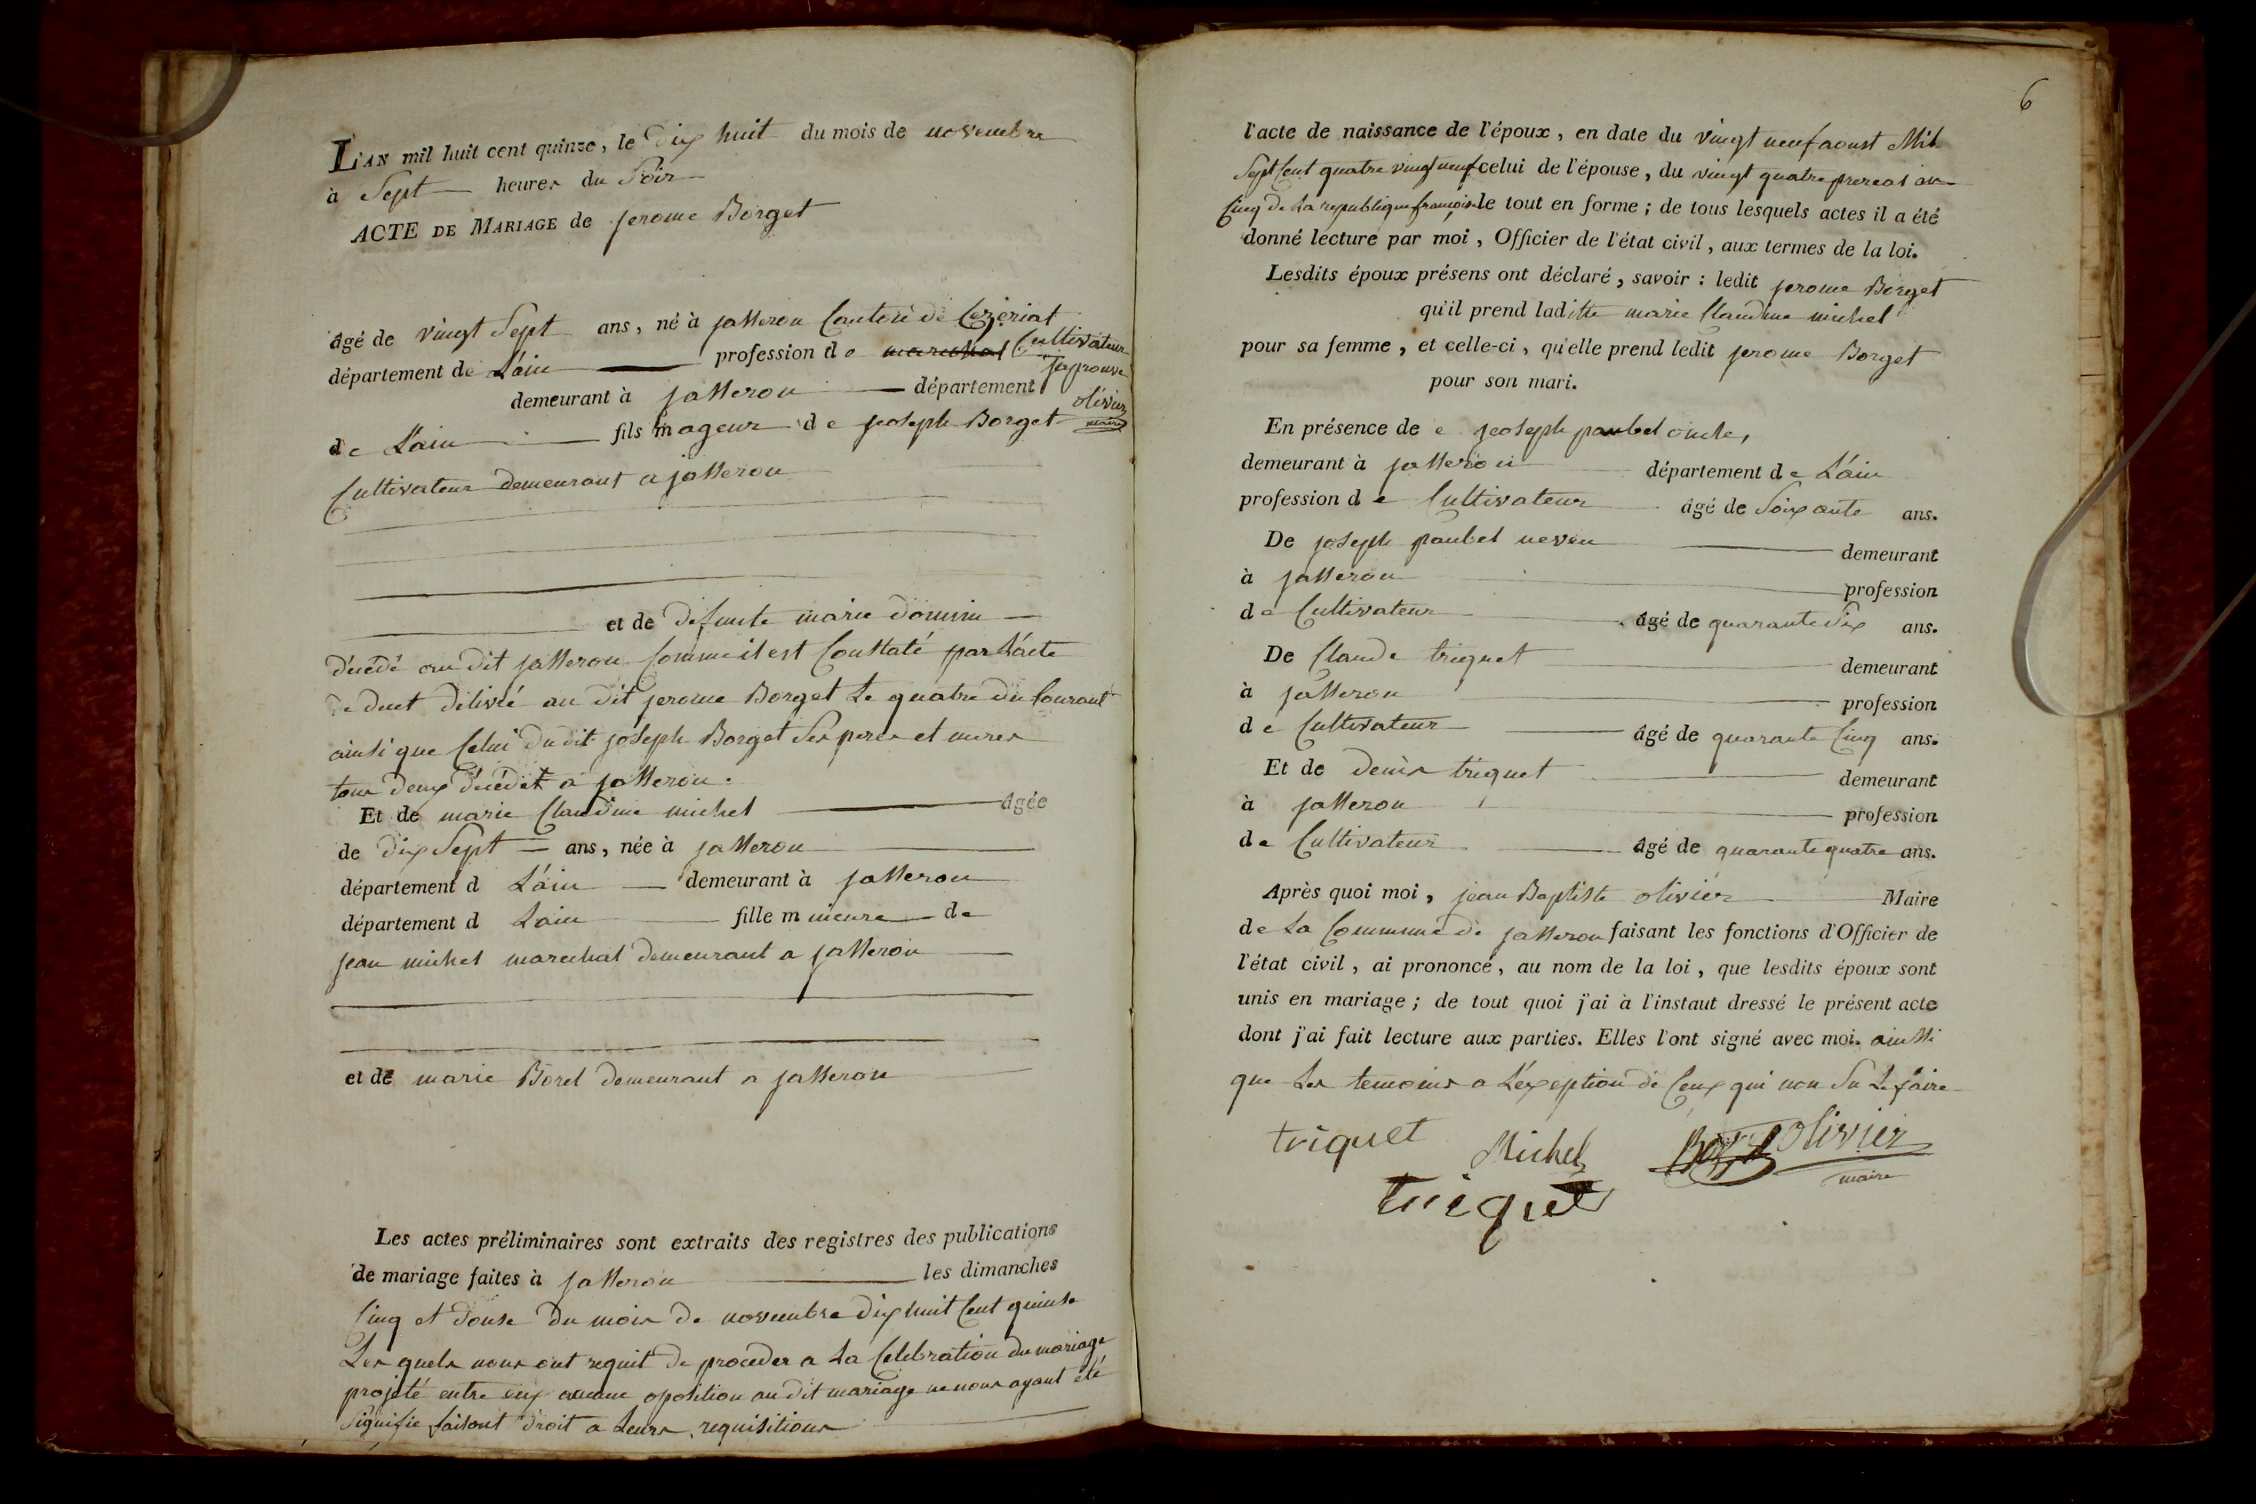 L'AN mil huit cent quinze, le dix huit du mois de novembre
à Sept heures du Soir
ACTE DE MARIAGE de jerome Borget
âgé de vingt Sept ans, né à jasseron Canton de Cezeriat
département de L'ain profession de marechal Cultivateur
japrouve
demeurant à jasseron département
olivier
maire
de L'ain fils mageur de joseph Borget
Cultivateur demeurant a jasseron
et de défunte marie
décédé au dit jasseron Comme il est Constaté par L'acte
délivré au dit jerome Borget Le quatre du Courant
ainsi que Celui du dit joseph Borget Ses peres et meres
tous deux décédét a jasseron.
Et de marie Claudine michel âgée
de dix Sept ans, née à jasseron
département d L'ain demeurant à jasseron
département d Lain fille mineure de
jean michel marechal demeurant a jasseron
et de marie Borel demeurant a jasseron
Les actes préliminaires sont extraits des registres des publications
de mariage faites à jasseron les dimanches
Cinq et douse du mois de novembre dix huit Cent quinse
Les quels nous ont requit de proceder a La Celebration du mariage
projeté entre eux aucune oposition au dit mariage ne nous ayant été
Signifie faisant droit a Leurs requisitions
6
l'acte de naissance de l'époux, en date du vingt neuf aoust Mil
Sept Cent quatre vingt neuf celui de l'épouse, du vingt quatre prereal an
Cinq de La republique françoise le tout en forme; de tous lesquels actes il a été
donné lecture par moi, Officier de l'état civil, aux termes de la loi.
Lesdits époux présens ont déclaré, savoir : ledit jerome Borget
qu'il prend laditte marie Claudine michel
pour sa femme, et celle-ci, qu'elle prend ledit jerome Borget
pour son mari.
En présence de e joseph paubel oncle,
demeurant à jasseron département de L'ain
profession de Cultivateur âgé de Soixante ans.
De joseph paubel neveu demeurant
à jasseron profession
de Cultivateur âgé de quarante Six ans.
De Claude triquet demeurant
à jasseron profession
de Cultivateur âgé de quarante Cinq ans.
Et de denis triquet demeurant
à jasseron profession
de Cultivateur âgé de quarante quatre ans.
Après quoi moi, jean Baptiste olivier Maire
de La Commune de jasseron faisant les fonctions d'Officier de
l'état civil, ai prononcé, au nom de la loi, que lesdits époux sont
unis en mariage; de tout quoi j'ai à l'instaut dressé le présent acte
dont j'ai fait lecture aux parties. Elles l'ont signé avec moi. ainssi
que Les temoins a L'exeption de Ceux qui non Su Le faire
triquet Michel Olivier
maire
triquet